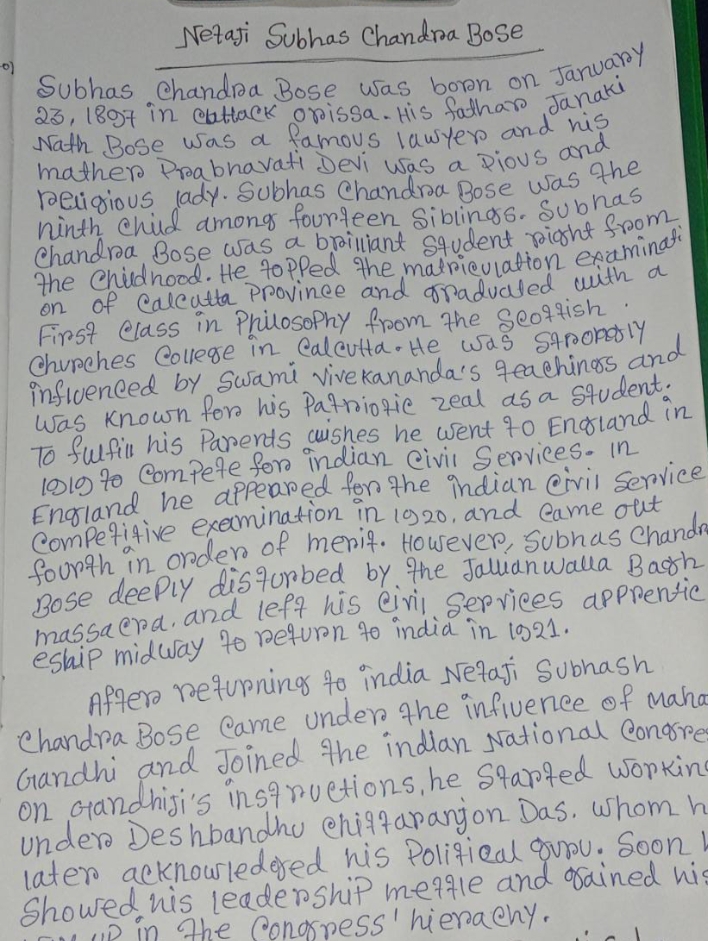 Netaji Subhas Chandra Bose
Subhas Chandra Bose was born on January
23, 1897 in Cuttack orissa. His fathar Janaki
Nath Bose was a famous lawyer and his
mather Prabhavati Devi was a Pious and
religious lady. Subhas Chandra Bose was the
ninth Child among fourteen Siblings. Subhas
Chandra Bose was a brilliant Student right from
the Childhood. He topped the matriculation examinati
on of Calcutta Province and graduated with a
First Class in Philosophy from the Scottish
Churches College in Calcutta. He was Strongly
influenced by Swami Vivekananda's teachings and
was known for his Patriotic zeal as a Student.
To fulfill his Parents wishes he went to England in
1919 to Compete for indian Civil Services. In
England he appeared for the indian Civil Service
Competitive examination in 1920, and Came out
fourth in order of merit. However, Subhas Chandr
Bose deeply disturbed by the Jallianwalla Bagh
massacra, and left his Civil Services apprentic
eship midway to return to india in 1921.
After returning to india Netaji Subhash
Chandra Bose Came under the influence of Maha
Gandhi and Joined the indian National Congre
on Gandhiji's instructions, he Started workin
under Deshbandhu Chittaranjon Das. whom h
later acknowledged his Political guru. Soon
Showed his leadership mettle and gained his
up in the Congress' hierachy.